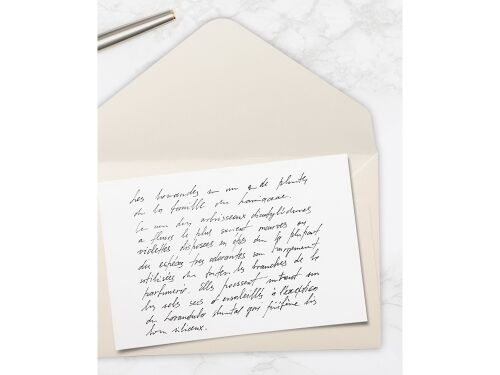 Les lavandes sont un g de plantes
de la famille des lamiaceae.
Ce sont des arbrisseaux dicotylédones
à fleurs le plus souvent mauves ou
violettes disposées en épis dont la plupart
des espèces, très odorantes, sont largement
utilisées dans toutes les branches de la
parfumerie. Elles poussent surtout sur
les sols secs et ensoleillés à l'exception
du Lavandula qui préfère les
sols siliceux.